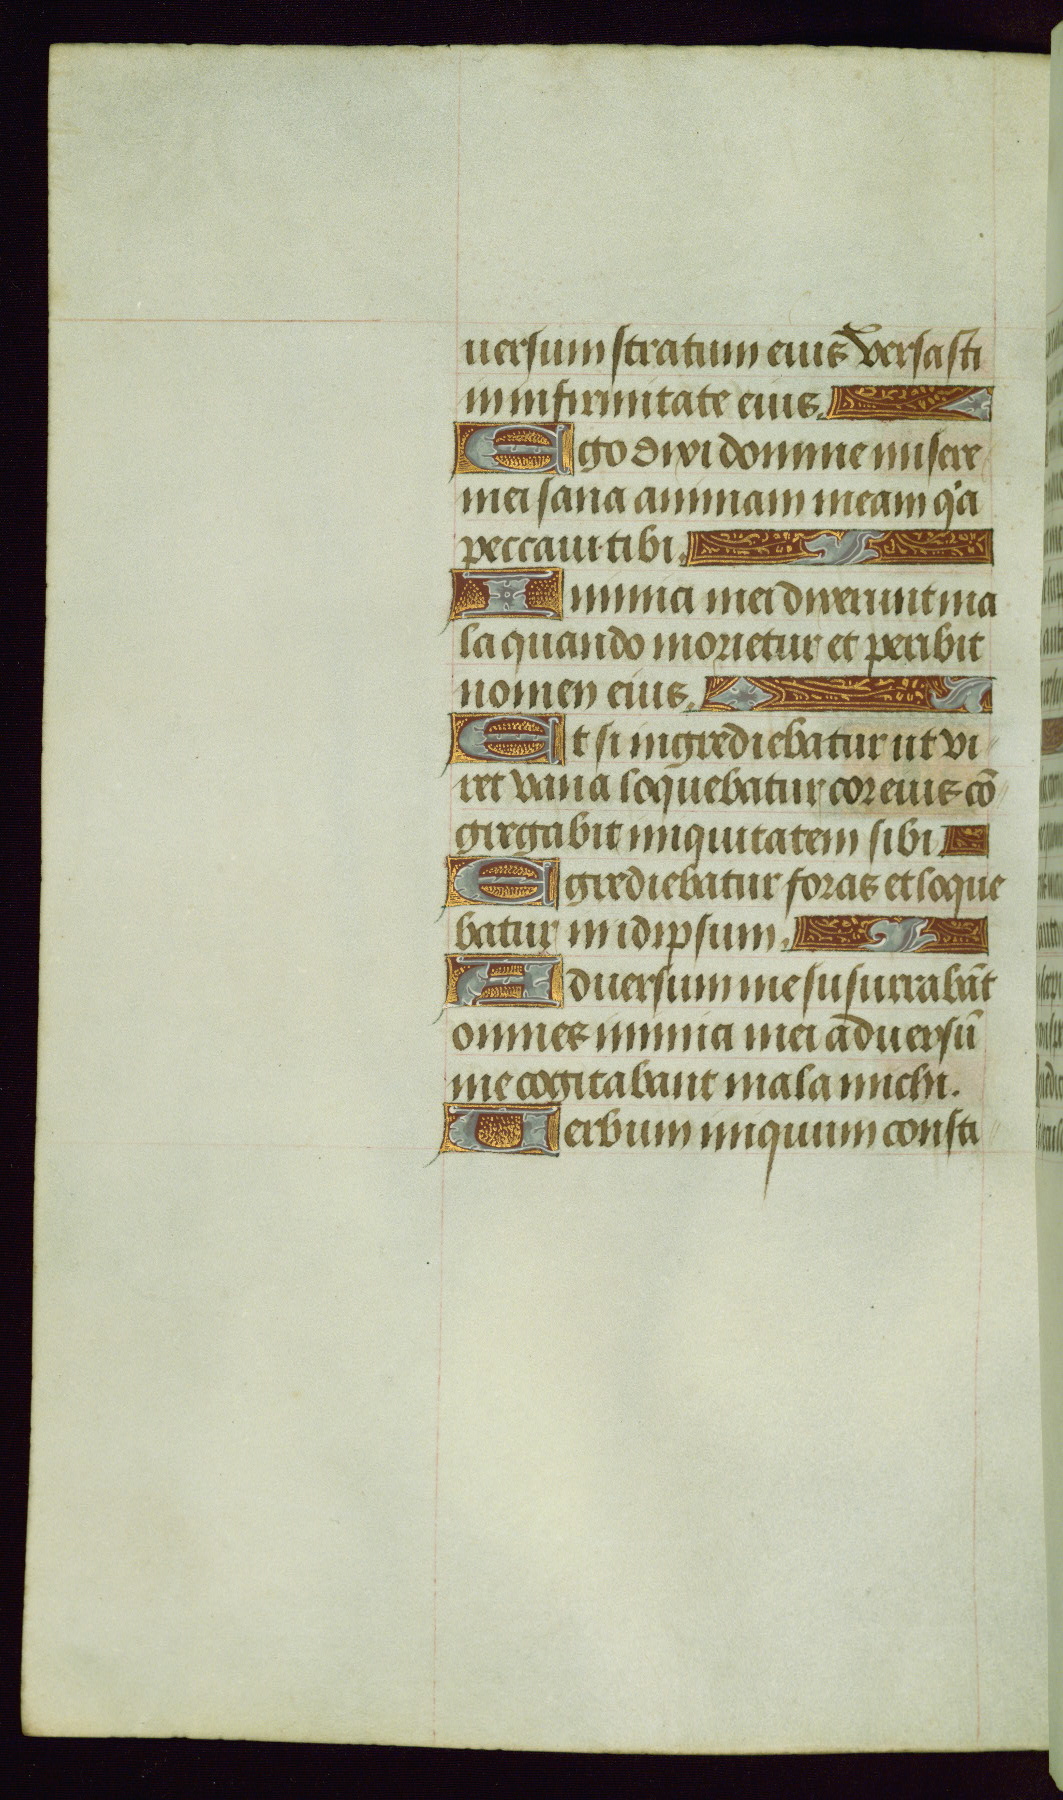 uersum stratum eius versasti
in infirmitate eius.
Ego dixi domine misere
mei sana animam meam q'a
peccaui tibi.
Inimici mei dixerunt ma
la quando morietur et peribit
nomen eius.
Et si ingrediebatur ut vi
ret vana loquebatur cor eius cō
gregabit iniquitatem sibi
Egrediebatur foras et loque
batur in idipsum.
Aduersum me susurrabāt
omnes inimici mei aduersū
me cogitabant mala michi.
Uerbum iniquum consti